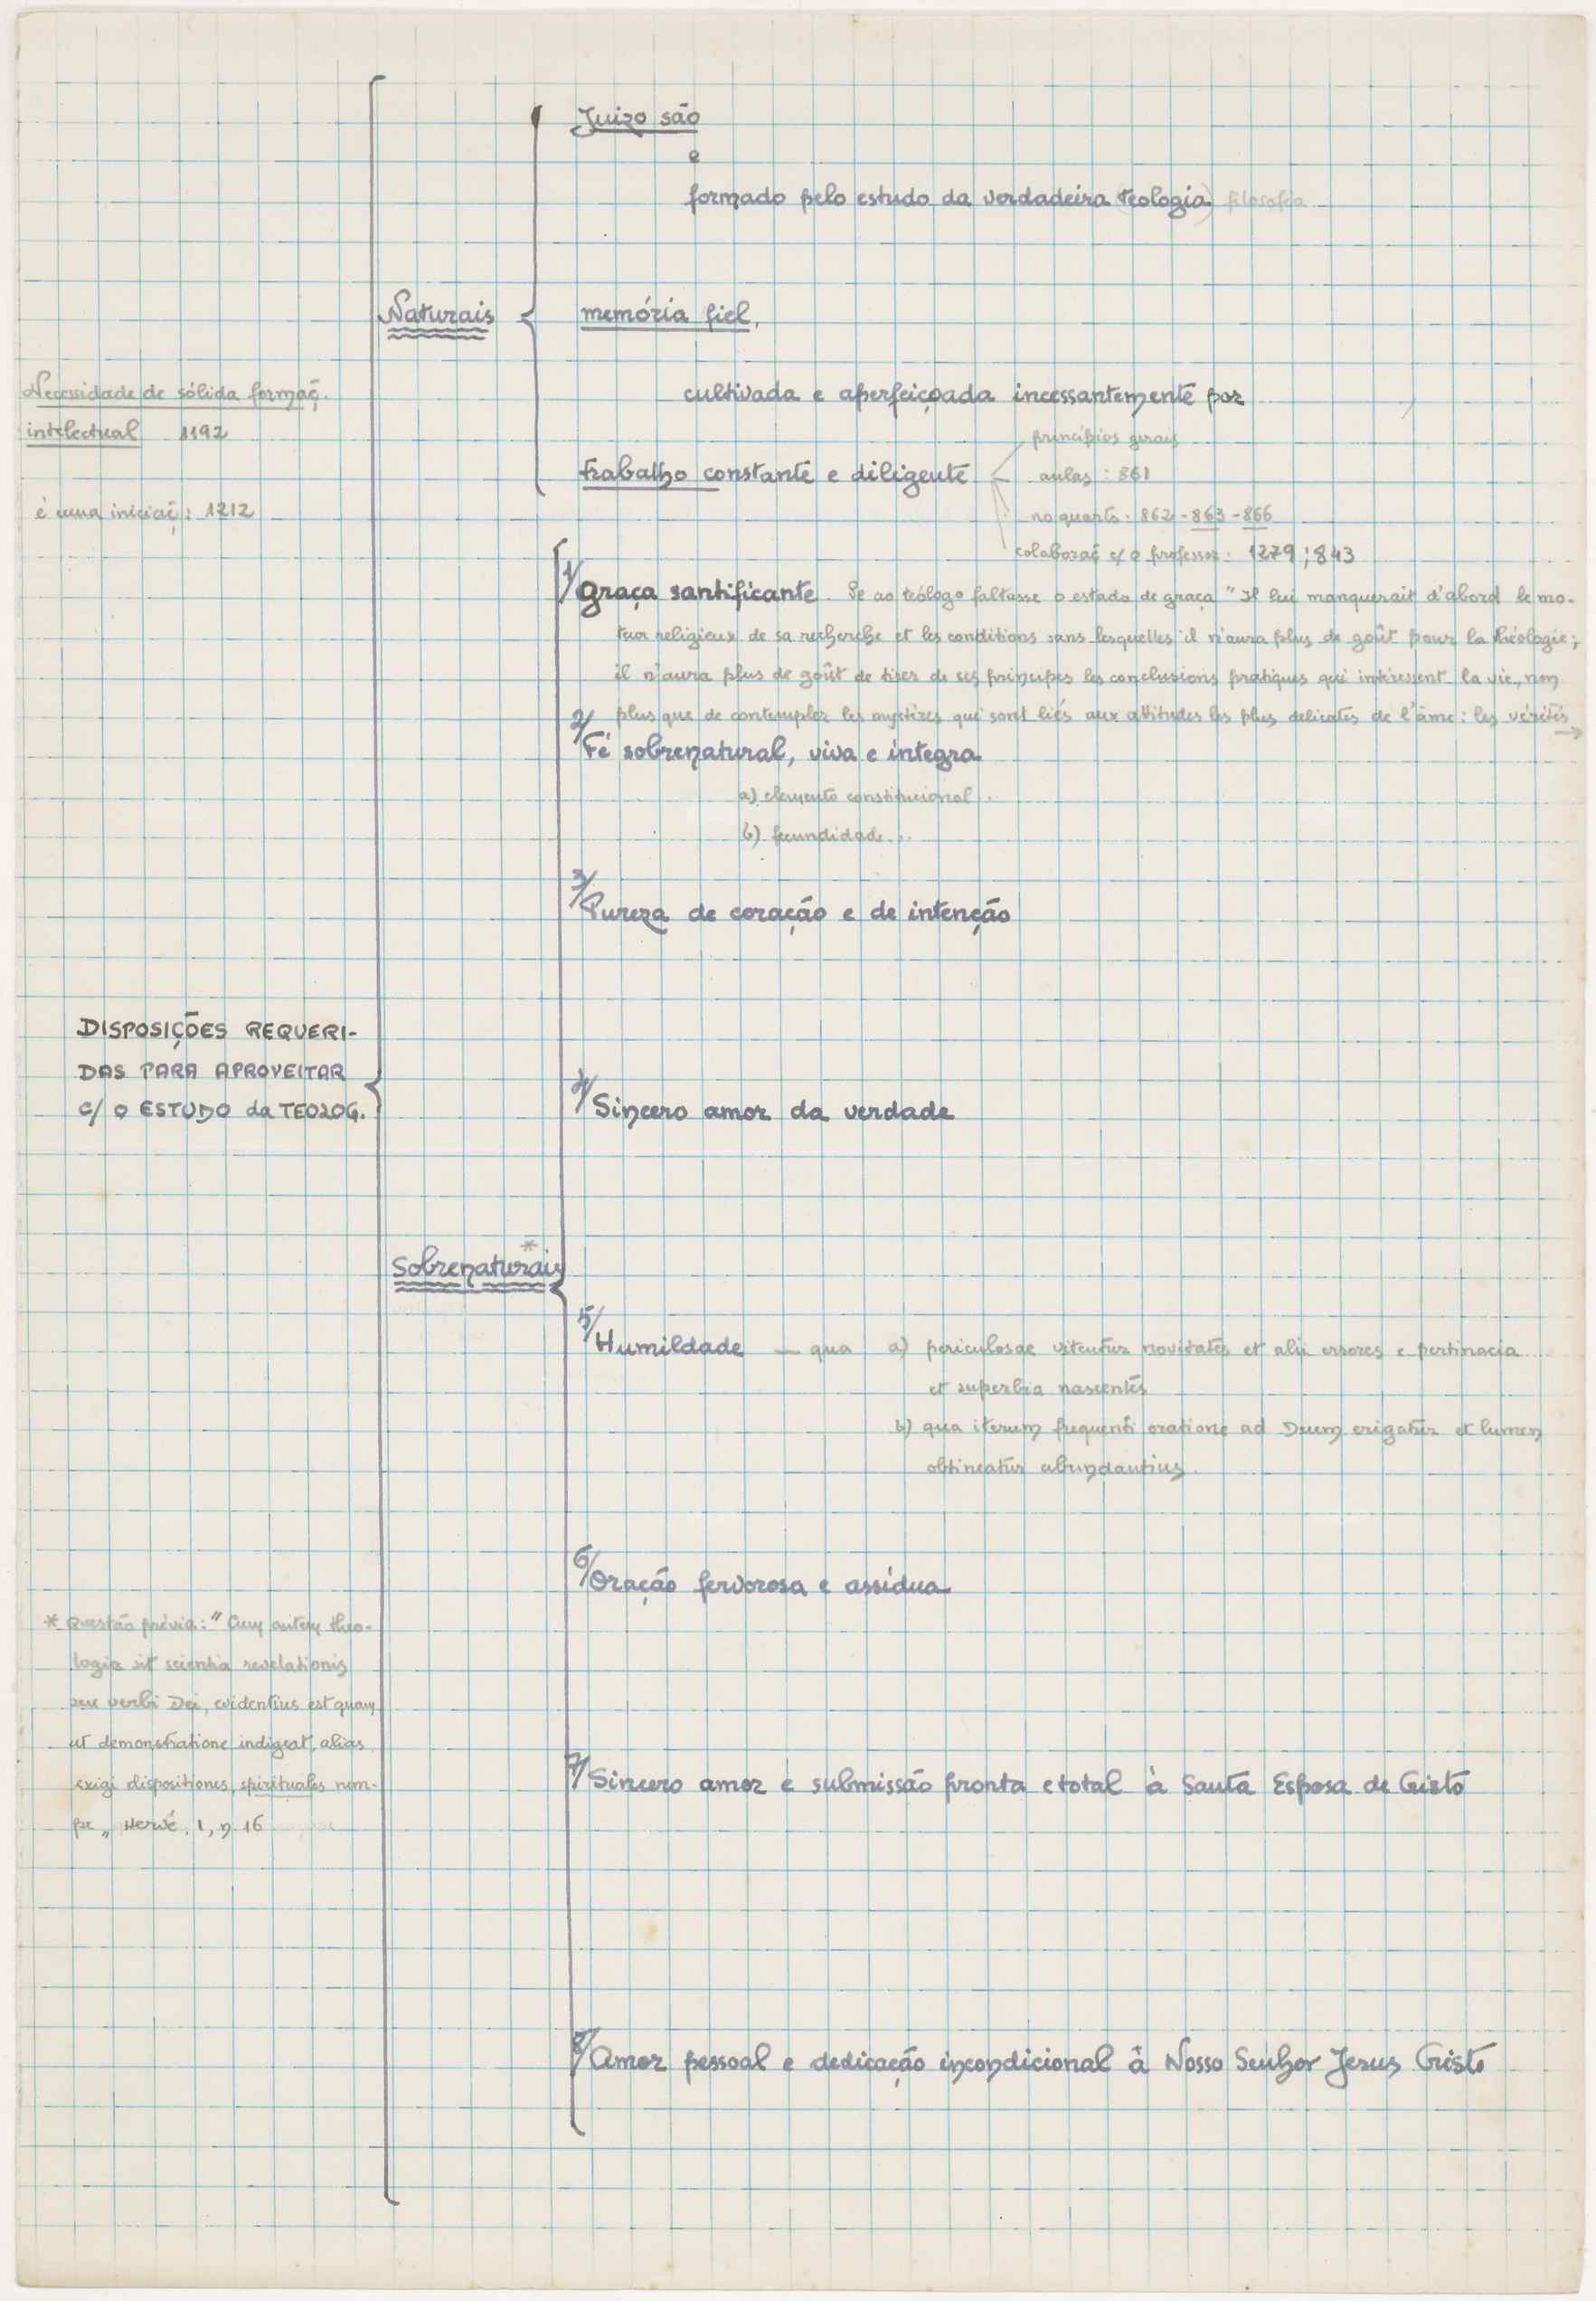 Juizo são
e
formado pelo estudo da verdadeira (teologia) filosofia
Naturais
memória fiel,
cultivada e aperfeiçoada incessantemente por
Necessidade de sólida formaç.
intelectual 1192
princípios gerais
trabalho constante e diligente
aulas : 861
é uma iniciaç : 1212
no quarto : 862 - 863 - 866
colaboraç c/ o professor : 1279 ; 843
1/ graça santificante. Se ao teólogo faltasse o estado de graça " Il lui manquerait d'abord le mo-
teur religieux de sa recherche et les conditions sans lesquelles il n'aura plus de goût pour la théologie ;
il n'aura plus de goût de tirer de ses principes les conclusions pratiques qui intéressent la vie, non
plus que de contempler les mystères qui sont liés aux attitudes les plus delicates de l'âme : les vérités →
2/ Fé sobrenatural, viva e íntegra
a) elemento constitucional..
b) fecundidade...
3/ Pureza de coração e de intenção
DISPOSIÇÕES REQUERI-
DAS PARA APROVEITAR
C/ O ESTUDO da TEOLOG.
4/ Sincero amor da verdade
Sobrenaturais *
5/ Humildade — qua a) periculosae vitentur novitates et alii errores e pertinacia
et superbia nascentes
b) qua iterum frequenti oratione ad Deum erigatur et lumen
obtineatur abundantius.
6/ Oração fervorosa e assídua
* Questão prévia : " Cum autem theo-
logia sit scientia revelationis
seu verbi Dei, evidentius est quam
ut demonstratione indigeat, alias
exigi dispositiones, spirituales nem-
pe „ Hervé, 1, n. 16
7/ Sincero amor e submissão pronta e total à Santa Esposa de Cristo
8/ Amor pessoal e dedicação incondicional à Nosso Senhor Jesus Cristo